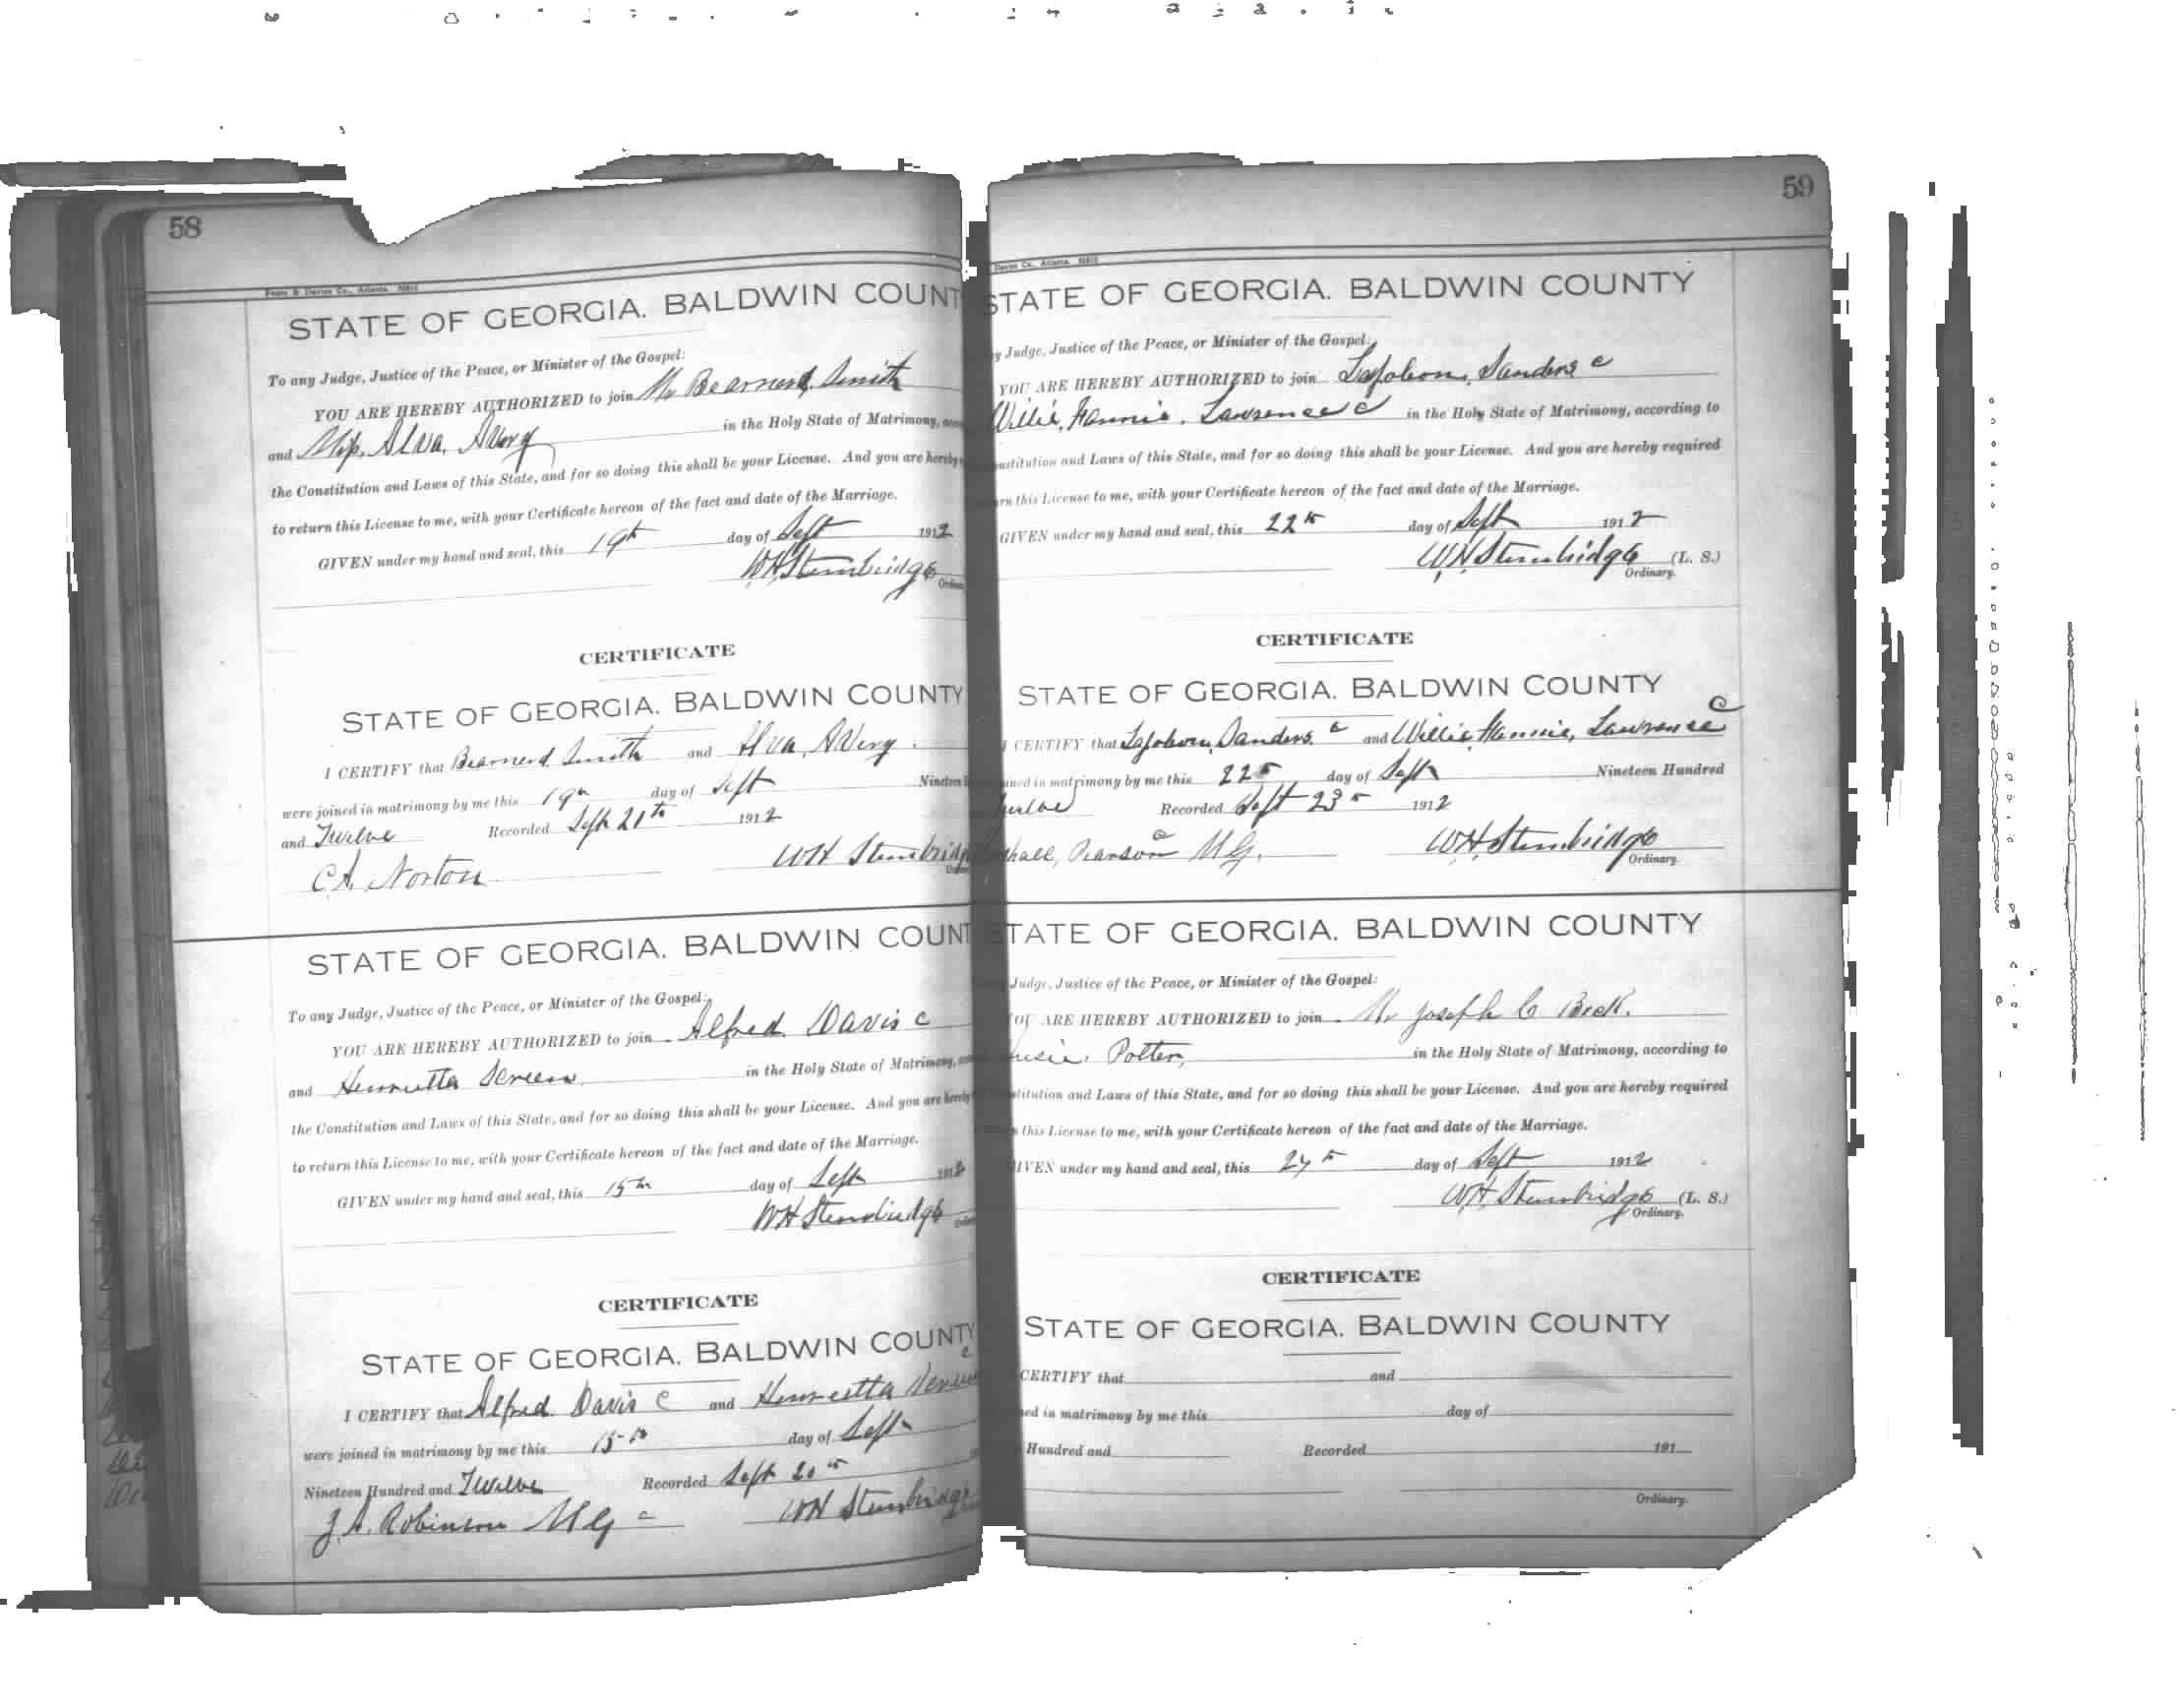 58
STATE OF GEORGIA. BALDWIN COUNT
To any Judge, Justice of the Peace, or Minister of the Gospel:
YOU ARE HEREBY AUTHORIZED to join Mr Bearnerd, Smith
and Miss, Alva, Avery in the Holy State of Matrimony,
the Constitution and Laws of this State, and for so doing this shall be your License. And you are hereby
to return this License to me, with your Certificate hereon of the fact and date of the Marriage.
GIVEN under my hand and seal, this 19th day of Sept 1912
W.H. Stembridge
CERTIFICATE
STATE OF GEORGIA. BALDWIN COUNTY
I CERTIFY that Bearnerd Smith and Alva, Avery.
were joined in matrimony by me this 19th day of Sept Nineteen
and Twelve Recorded Sept 21th 1912
C.A. Norton WH Stembridge
STATE OF GEORGIA. BALDWIN COUNT
To any Judge, Justice of the Peace, or Minister of the Gospel:
YOU ARE HEREBY AUTHORIZED to join Alfred Davis c
and Henrietta in the Holy State of Matrimony,
the Constitution and Laws of this State, and for so doing this shall be your License. And you are hereby
to return this License to me, with your Certificate hereon of the fact and date of the Marriage.
GIVEN under my hand and seal, this 15th day of Sept 1912
WH Stembridge
CERTIFICATE
STATE OF GEORGIA. BALDWIN COUNTY
c
I CERTIFY that Alfred Davis c and Henrietta
were joined in matrimony by me this 15th day of Sept
Nineteen Hundred and Twelve Recorded Sept 20th
J.A. Robinson MG c WH Stembridge
59
Davies Co., Atlanta
STATE OF GEORGIA. BALDWIN COUNTY
Judge, Justice of the Peace, or Minister of the Gospel:
YOU ARE HEREBY AUTHORIZED to join Sanders c
Willie, Lawrence c in the Holy State of Matrimony, according to
nstitution and Laws of this State, and for so doing this shall be your License. And you are hereby required
rn this License to me, with your Certificate hereon of the fact and date of the Marriage.
GIVEN under my hand and seal, this 22th day of Sept 1912
W.H. Stembridge (L. S.)
Ordinary.
CERTIFICATE
STATE OF GEORGIA. BALDWIN COUNTY
c
I CERTIFY that Sanders, c and Willie, Lawrence
ined in matrimony by me this 22th day of Sept Nineteen Hundred
Twelve Recorded Sept 23th 1912
Pearson c MG. W.H. Stembridge
Ordinary.
STATE OF GEORGIA. BALDWIN COUNTY
Judge, Justice of the Peace, or Minister of the Gospel:
YOU ARE HEREBY AUTHORIZED to join Mr Joseph C Beck.
usie, Potter, in the Holy State of Matrimony, according to
stitution and Laws of this State, and for so doing this shall be your License. And you are hereby required
this License to me, with your Certificate hereon of the fact and date of the Marriage.
GIVEN under my hand and seal, this day of Sept 1912
WH. Stembridge (L. S.)
Ordinary.
CERTIFICATE
STATE OF GEORGIA. BALDWIN COUNTY
CERTIFY that and
ned in matrimony by me this day of
Hundred and Recorded 191
Ordinary.